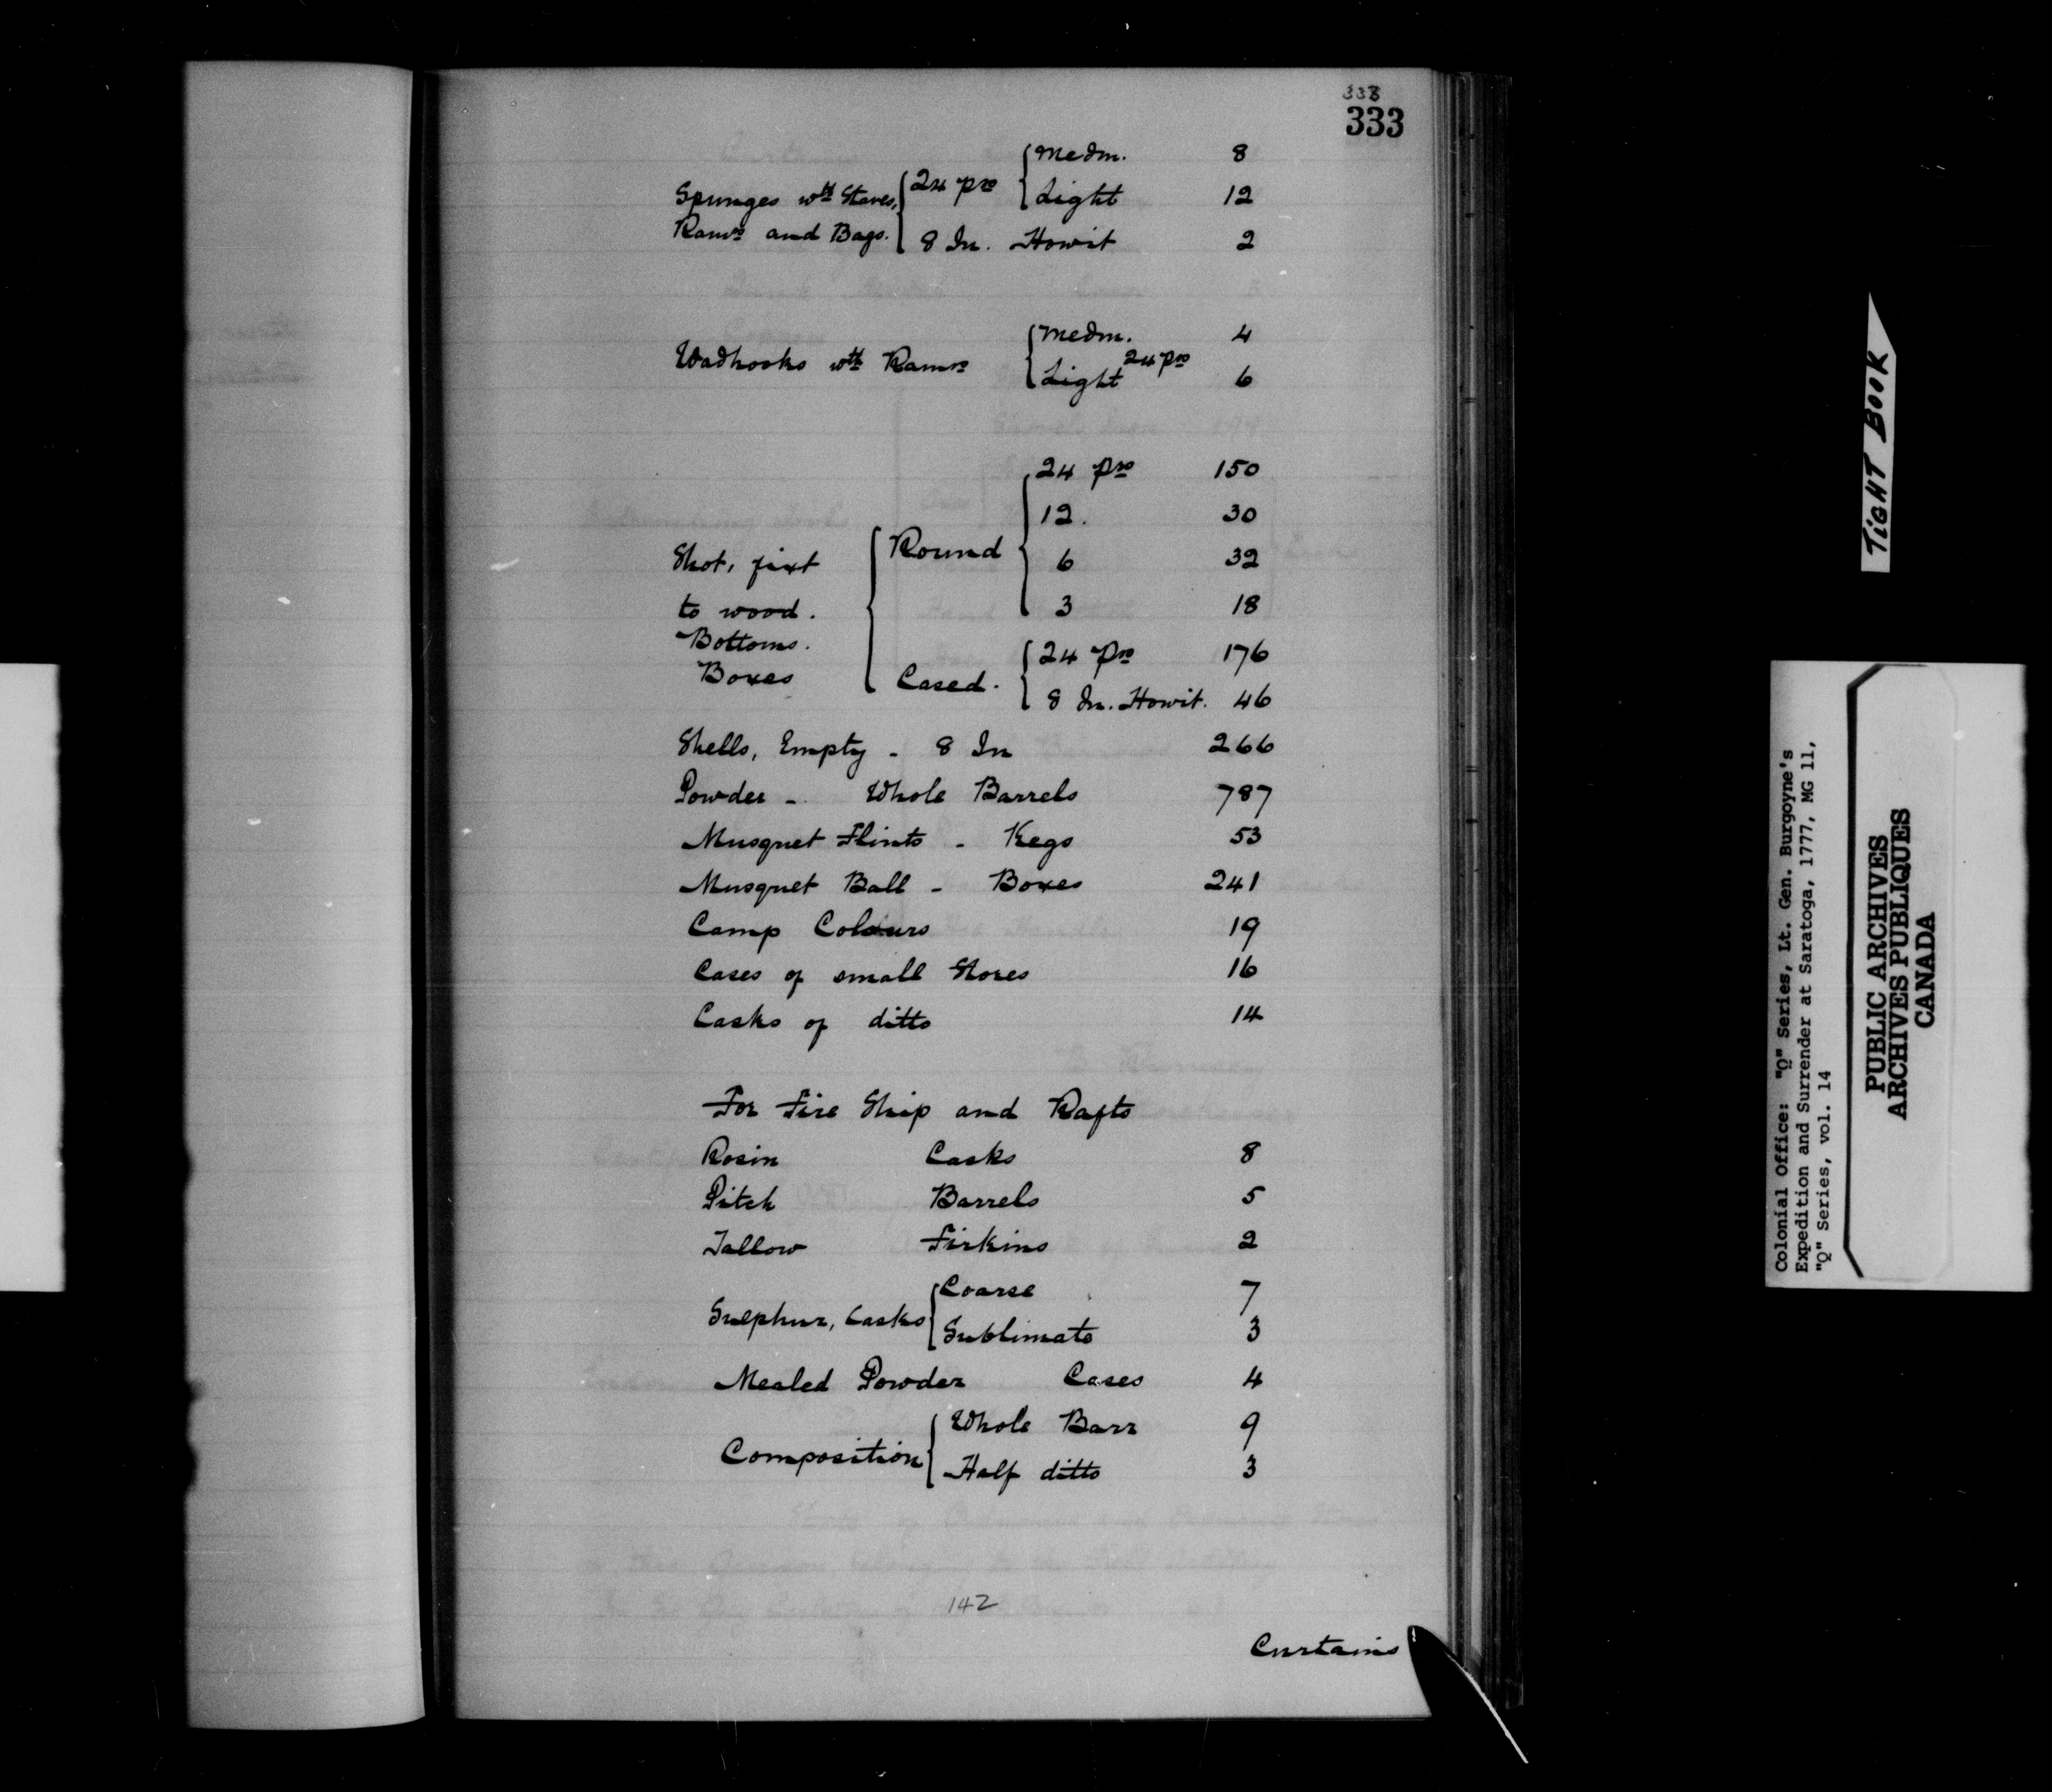 338
333
Medm. 8
Spunges wth Staves, 24 prs Light 12
Ramrs and Bags. 8 In. Howit 2
Medm. 4
Wadhooks wth Ramrs 24 prs
Light 6
24 prs 150
12. 30
Round
Shot, fixt 6 32
to wood. 3 18
Bottoms.
24 prs 176
Boxes Cased. 8 In. Howit. 46
Shells, Empty - 8 In 266
Powder - Whole Barrels 787
Musquet Flints - Kegs 53
Musquet Ball - Boxes 241
Camp Colours 19
Cases of small Stores 16
Casks of ditto 14
For Fire Ship and Rafts
Rosin Casks 8
Pitch Barrels 5
Tallow Firkins 2
Coarse 7
Sulphur, Casks
Sublimate 3
Mealed Powder Cases 4
Whole Barr 9
Composition
Half ditto 3
142
Curtains
TIGHT BOOK
Colonial Office: "Q" Series, Lt. Gen. Burgoyne's
Expedition and Surrender at Saratoga, 1777, MG 11,
"Q" Series, vol. 14
PUBLIC ARCHIVES
ARCHIVES PUBLIQUES
CANADA